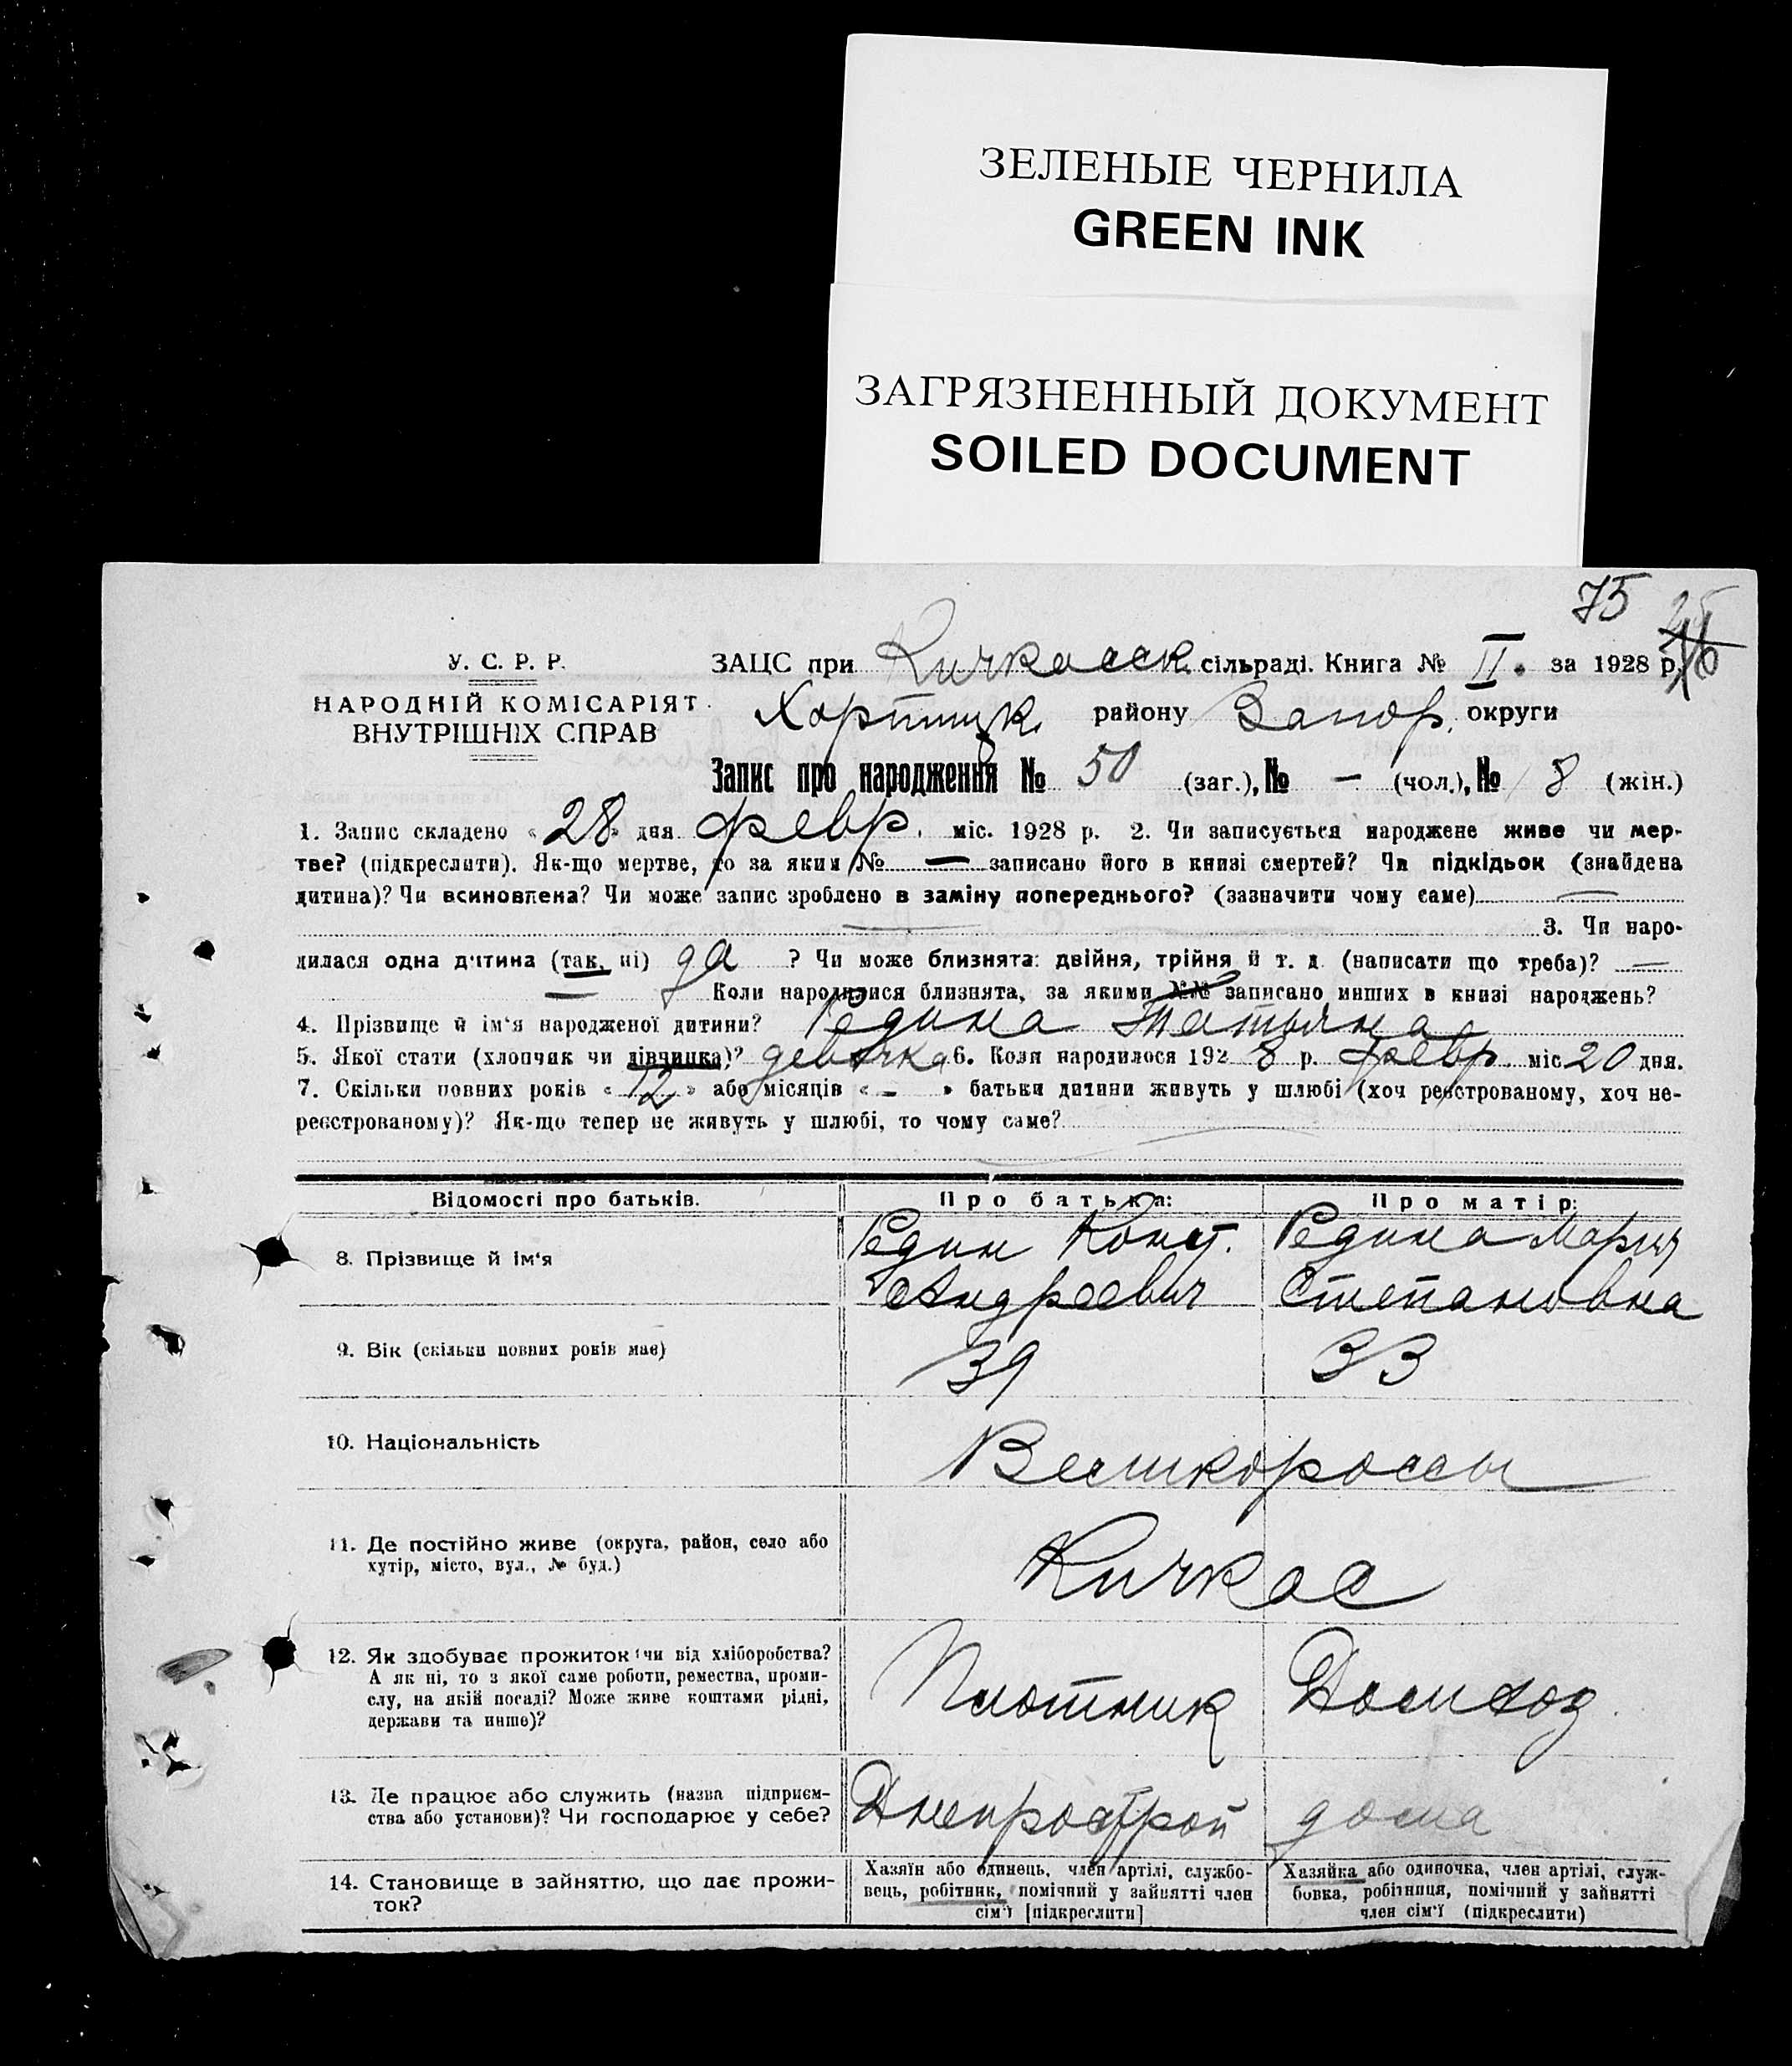 ЗЕЛЕНЫЕ ЧЕРНИЛА
GREEN INK
ЗАГРЯЗНЕННЫЙ ДОКУМЕНТ
SOILED DOCUMENT
75
У. С. Р. Р.
НАРОДНІЙ КОМІСАРІЯТ
ВНУТРІШНІХ СПРАВ
ЗАЦС при Кичкасск. сільраді. Книга № II. за 1928 р.
Хортицк. району Запор. округи
Запис про народження № 50 (заг.), № — (чол.), № 8 (жін.)
1. Запис складено « 28 » дня февр. міс. 1928 р. 2. Чи записується народжене живе чи мер-
тве? (підкреслити). Як-що мертве, то за яким № — записано його в книзі смертей? Чи підкідьок (знайдена
дитина)? Чи всиновлена? Чи може запис зроблено в заміну попереднього? (зазначити чому саме) —
— 3. Чи наро-
дилася одна дитина (так, ні) да ? Чи може близнята: двійня, трійня й т. д. (написати що треба)? —
— Коли народилися близнята, за якими №№ записано инших в книзі народжень?
4. Прізвище й ім'я народженої дитини? Редина Татьяна
5. Якої стати (хлопчик чи дівчинка)? девочка 6. Коли народилося 192 8 р. февр. міс. 20 дня.
7. Скільки повних років « 12 » або місяців « - » батьки дитини живуть у шлюбі (хоч реєстрованому, хоч не-
реєстрованому)? Як-що тепер не живуть у шлюбі, то чому саме?
Відомості про батьків. Про батька: Про матір:
8. Прізвище й ім'я Редин Конст. Андреевич Редина Мария Степановна
9. Вік (скільки повних років має) 39 33
10. Національність Великороссы
11. Де постійно живе (округа, район, село або
хутір, місто, вул., № буд.) Кичкас
12. Як здобуває прожиток: чи від хліборобства?
А як ні, то з якої саме роботи, ремества, проми-
слу, на якій посаді? Може живе коштами рідні,
держави та инше)? Плотник Домхоз.
13. Де працює або служить (назва підприєм-
ства або установи)? Чи господарює у себе? Днепрострой дома
14. Становище в зайняттю, що дає прожи-
ток?
Хазяїн або одинець, член артілі, службо-
вець, робітник, помічний у зайнятті член
сім'ї [підкреслити]
Хазяйка або одиночка, член артілі, служ-
бовка, робітниця, помічний у зайнятті
член сім'ї (підкреслити)